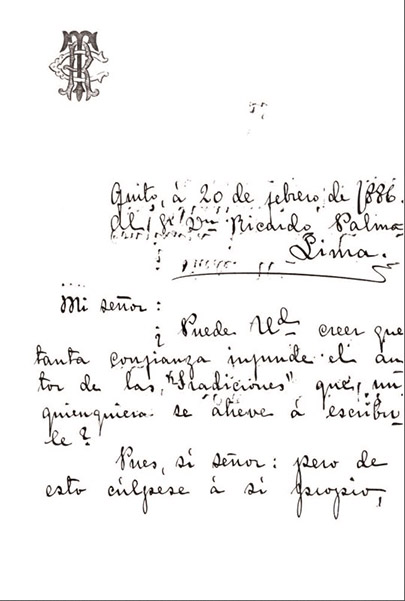 Quito, á 20 de febrero de 1886.
Al Sr Dn Ricardo Palma
Lima.
Mi señor:
¿Puede Ud creer que
tanta confianza infunde el au-
tor de las "Tradiciones" que, un
quienquiera se atreve á escribir-
le?
Pues, sí señor: pero de
esto cúlpese á sí propio,